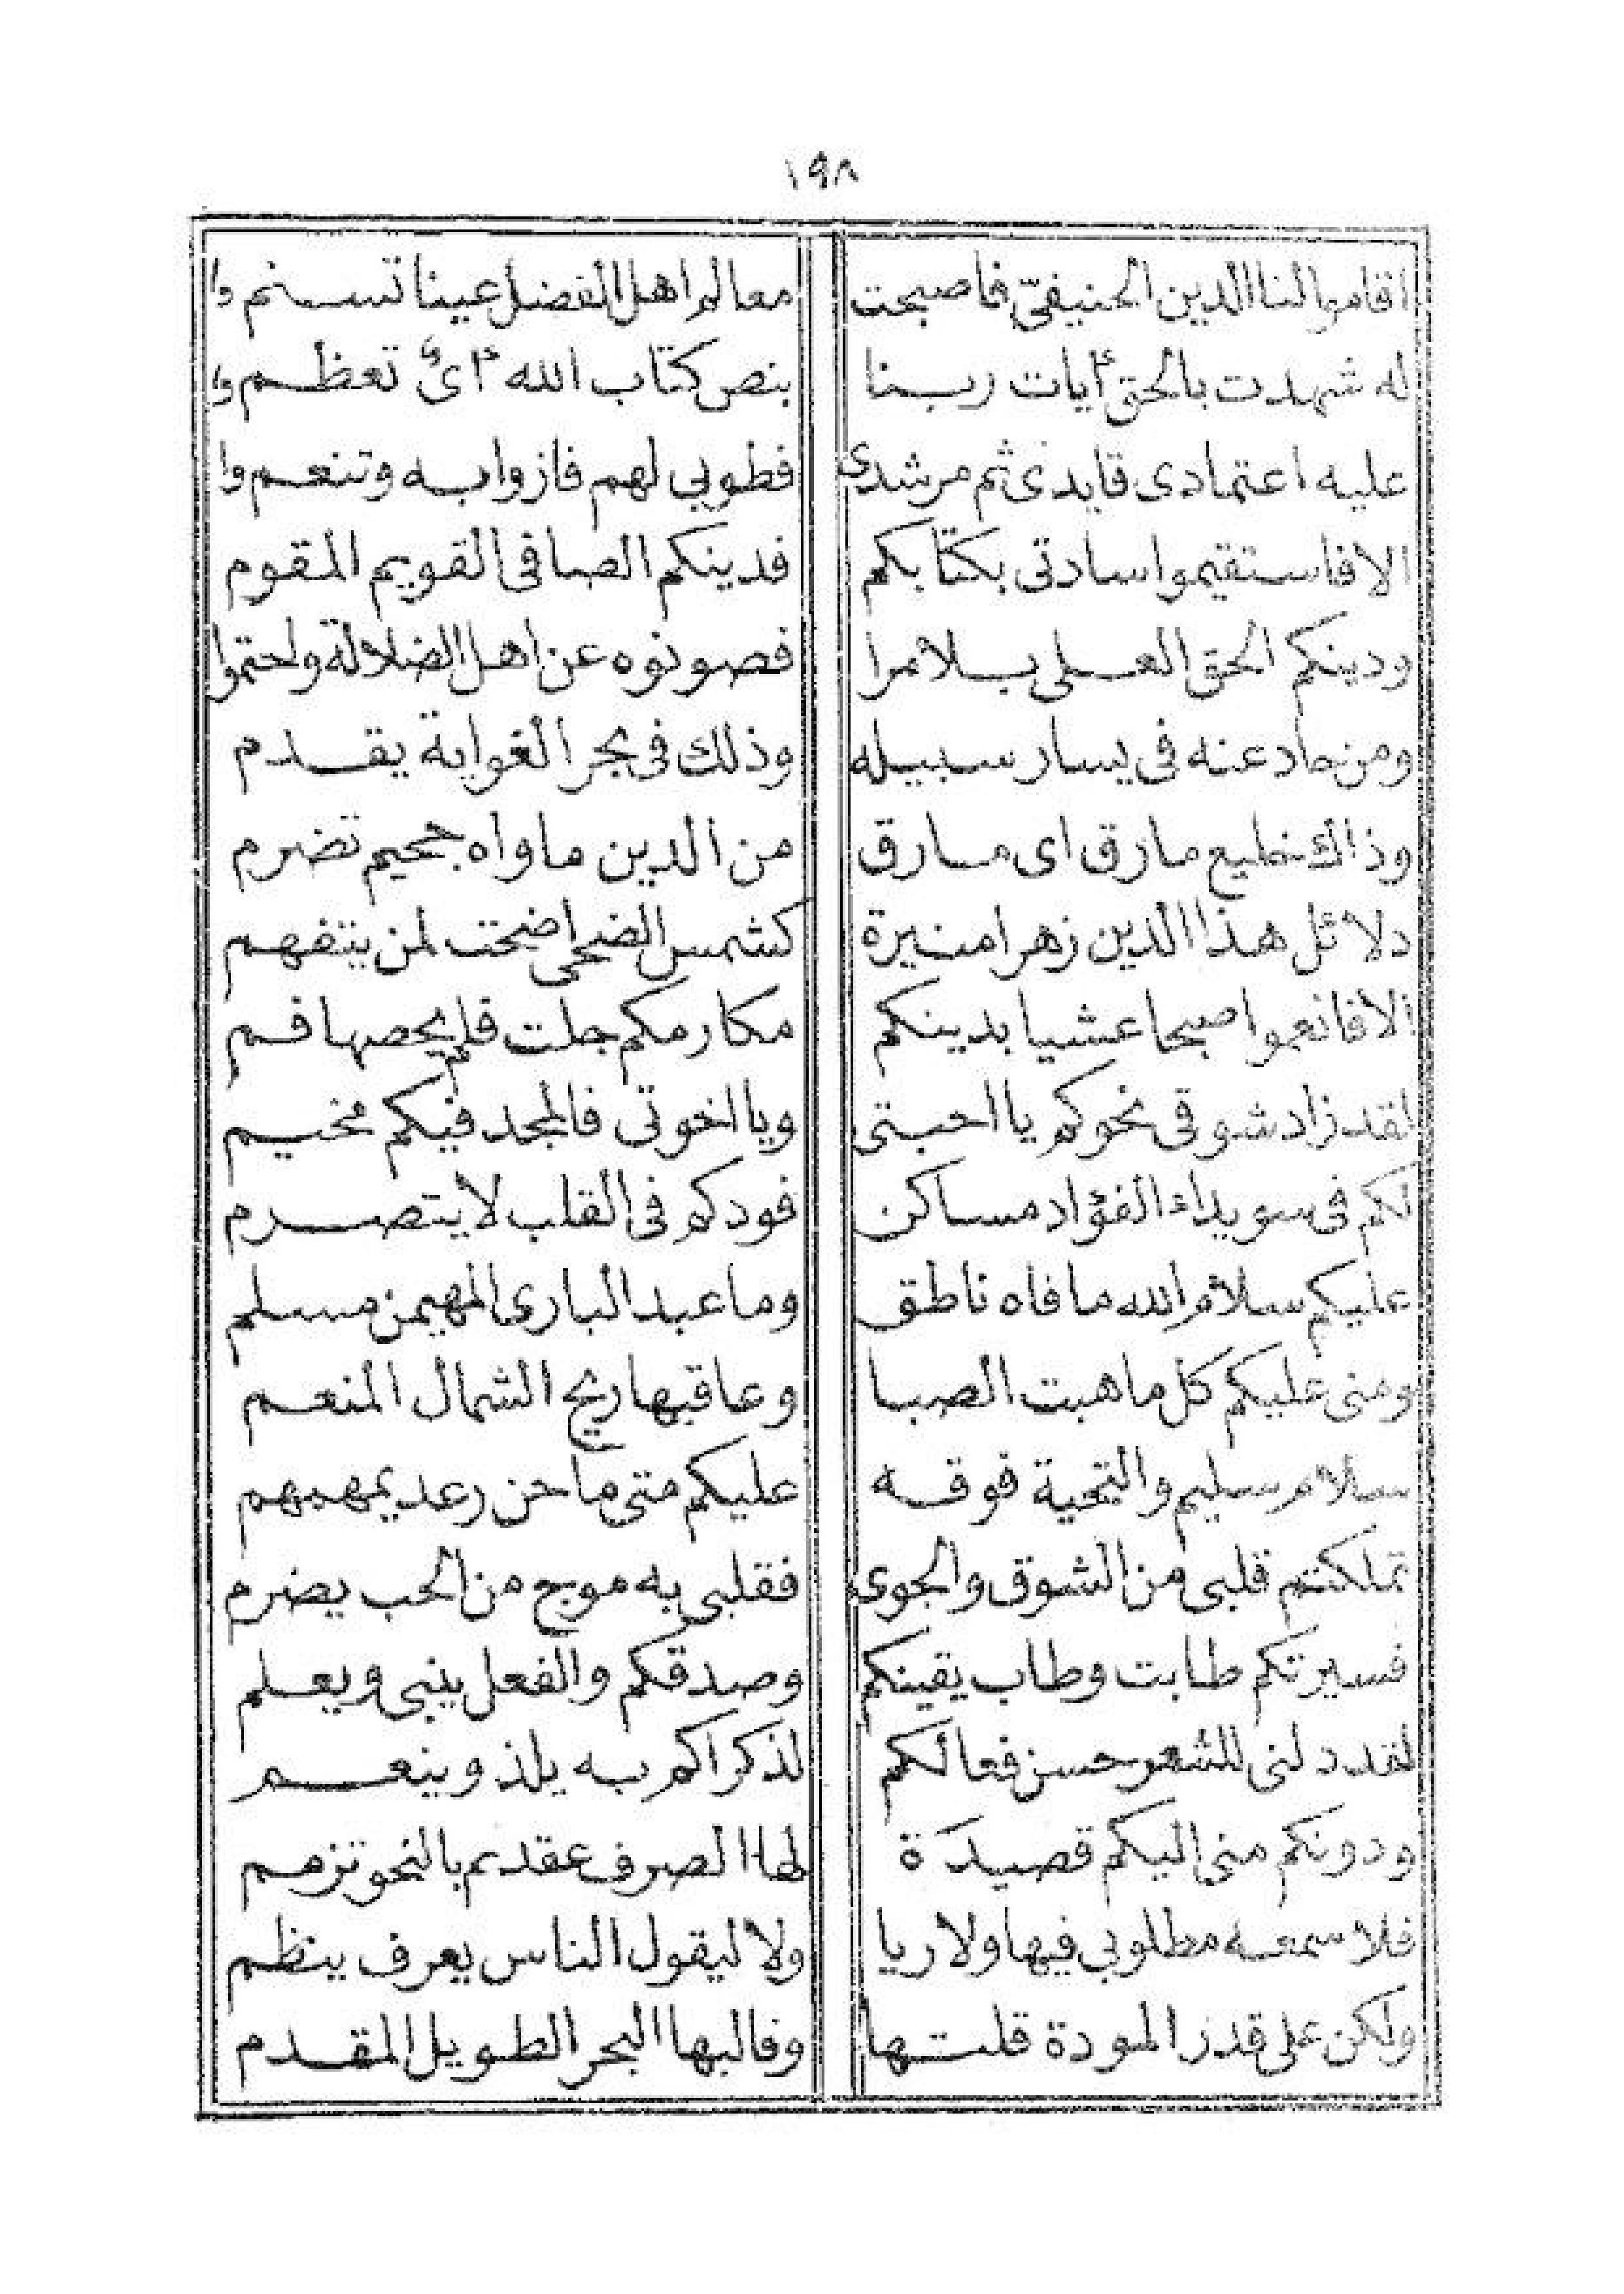 ١٩٨
اقاموا لنا الدين الحنيفيّ فاصبحت معالم اهل الفضل عينا تسنموا
له شهدت بالحق أيات ربنا بنص كتاب الله أىٌ تعظموا
عليه اعتمادى قايدى ثم مرشدى فطوبي لهم فازوا به وتنعموا
الا فاستقيموا سادتى بكتابكم فدينكم الصافى القويم المقوم
ودينكم الحق العلى بلا مرا فصونوه عن اهل الضلالة واحتموا
ومن حاد عنه فى يسار سبيله وذلك فى بحر الغواية يقدم
وذاك خليع مارق اى مارق من الدين ماواه جحيم تضرم
دلائل هذا الدين زهرا منيرة كشمس الضحى اضحت لمن يتفهم
الا فانعموا صبحا عشيا بدينكم مكارمكم جلت فلم يحصها فم
لقد زاد شوقى نحوكم يا احبتى ويا اخوتى فالمجد فيكم مخيم
لكم فى سويداء الفؤاد مساكن فودكم فى القلب لا يتصرم
عليكم سلام الله ما فاه ناطق وما عبد البارى المهيمن مسلم
ومنى عليكم كل ما هبت الصبا وعاقبها ريح الشمال المنعم
سلام سليم والتحية فوقه عليكم متى ما حن رعد يمهمهم
تملكتم قلبى من الشوق والجوى فقلبى به موج من الحب يضرم
فسيرتكم طابت وطاب يقينكم وصدقكم والفعل ينبى ويعلم
لقد دلنى للشعر حسن فعالكم لذكراكم به يلذ وينعم
ودونكم منى اليكم قصيدَة لها الصرف عقد يم بالنحو تزمم
فلا سمعه مطلوبي فيها ولا ريا ولا ليقول الناس يعرف ينظم
ولكن على قدر المودة قلتها وفالبها البحر الطويل المقدم